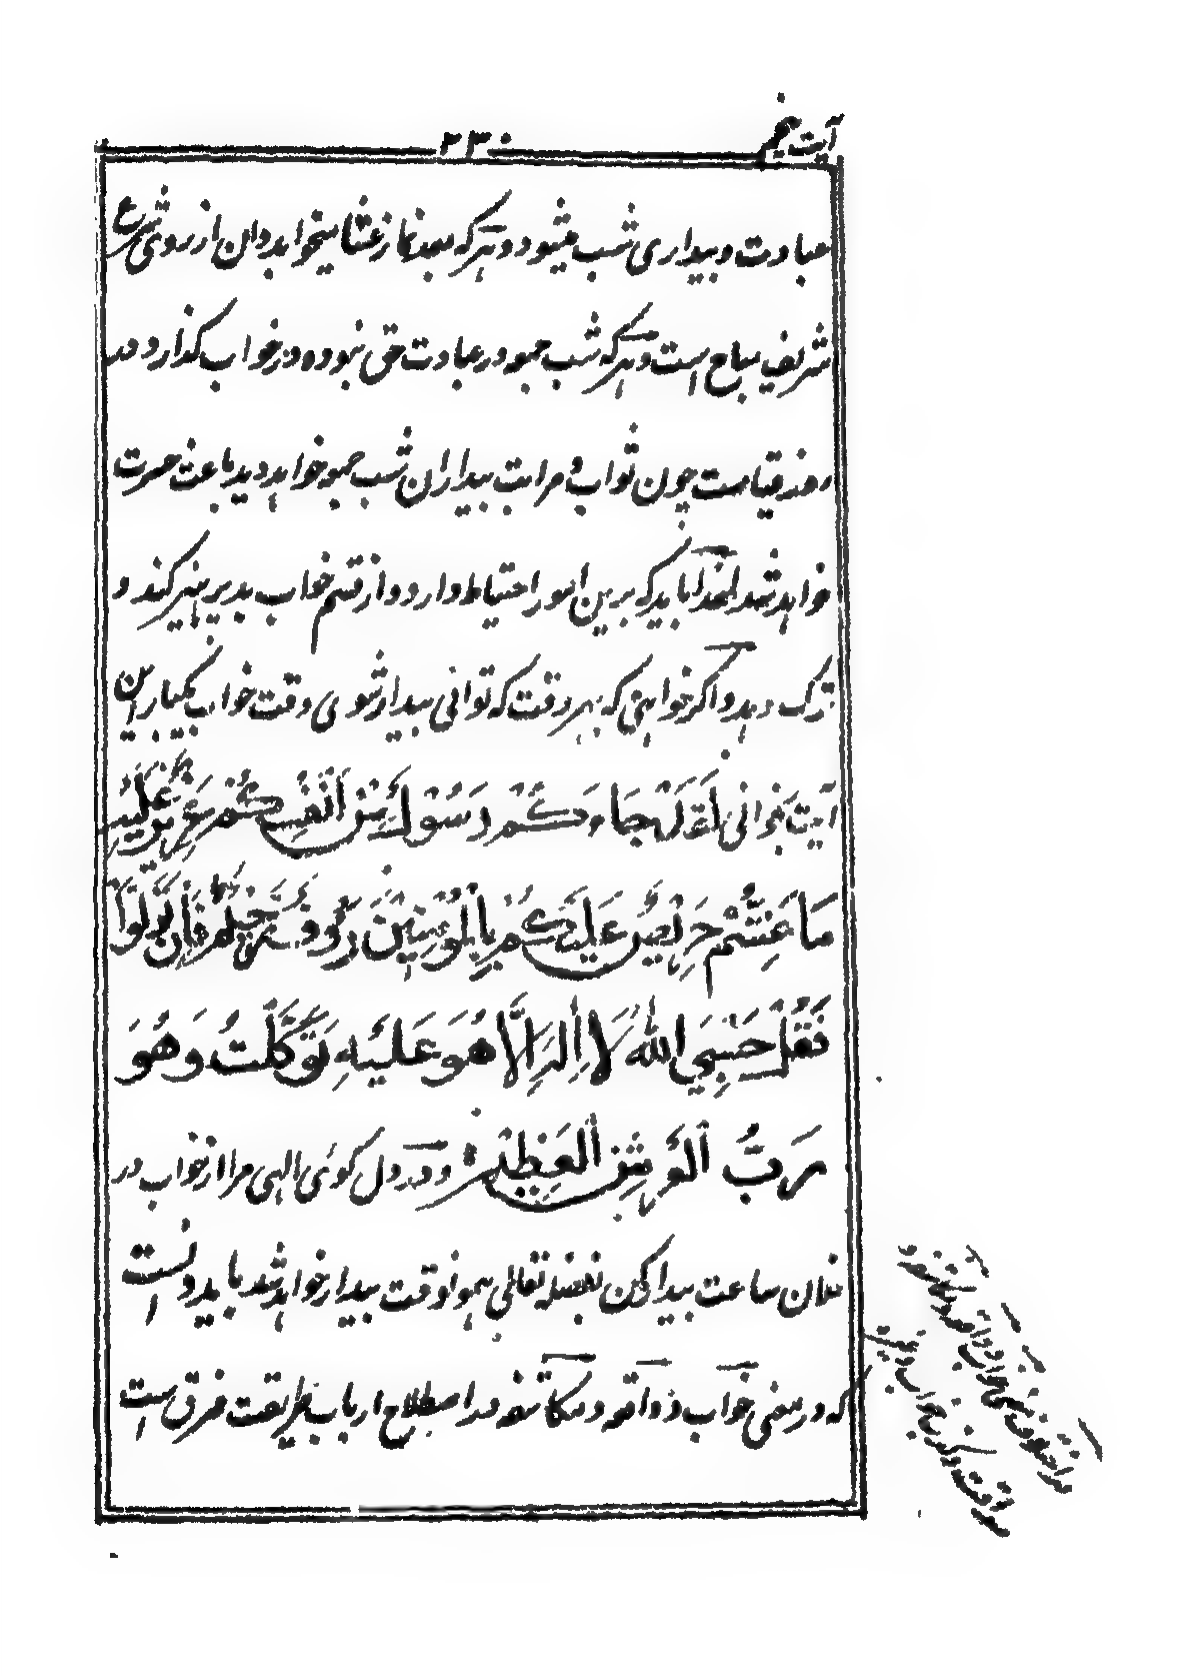 آیت پنجم
۲۳۰
عبادت و بیداری شب میشود و هرکه بعد نماز عشا میخوابد و این از روی شرع
شریف مباح است و هرکه شب جمعه در عبادت حق نبوده در خواب گذارد در
روز قیامت چون ثواب و مراتب بیداران شب جمعه خواهد دید باعث حسرت
خواهد شد لهذا باید که برین امور احتیاط دارد و از قسم خواب بد پرهیز کند و
ترک دهد و اگر خواهی که بهر وقت که توانی بیدار شوی وقت خواب یکبار این
آیت بخوانی لَقَدْ جَاءَكُمْ رَسُوْلٌ مِنْ اَنْفُسِكُمْ عَزِيْزٌ عَلَيْهِ
مَا عَنِتُّمْ حَرِيْصٌ عَلَيْكُمْ بِالْمُؤْمِنِيْنَ رَؤُوْفٌ رَحِيْمٌ فَاِنْ تَوَلَّوْا
فَقُلْ حَسْبِيَ اللهُ لَا اِلٰهَ اِلَّا هُوَ عَلَيْهِ تَوَكَّلْتُ وَهُوَ
رَبُّ الْعَرْشِ الْعَظِيْمِ ۝ و در دل گوئی الهی مرا از خواب در
فلان ساعت بیدار کن بفضله تعالی همونوقت بیدار خواهد شد باید دانست
که در معنی خواب و واقعه و مکاشفه در اصطلاح ارباب طریقت فرق است
در اختلاف معنی خواب و واقعه و مکاشفه و